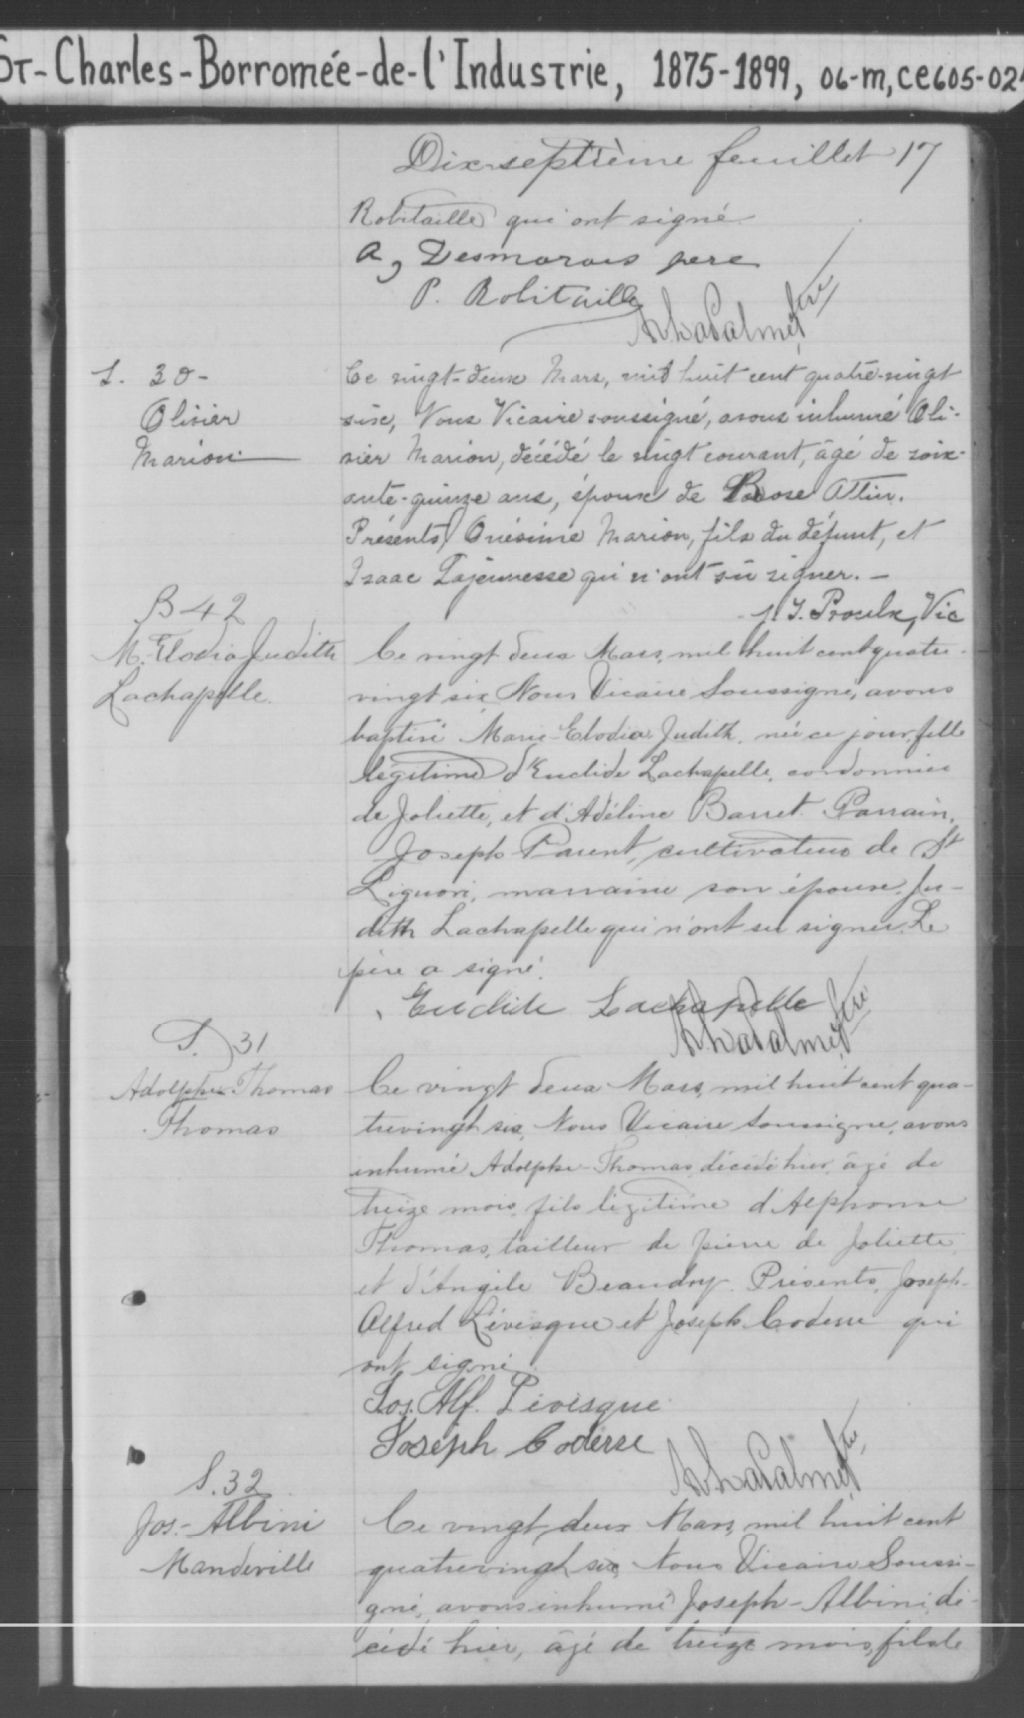 St-Charles-Borromée-de-l'Industrie, 1875-1899, 06-m, CE605-02
Dix-septième feuillet 17
Robitaille qui ont signé
A, Desmarais pere
P. Robitaille
ptre
S. 30-
Olivier
Marion
Ce vingt-deux Mars, mil huit cent quatre-vingt
six, Nous Vicaire soussigné, avons inhumé Oli-
vier Marion, décédé le vingt courant, âgé de soix-
ante-quinze ans, époux de Rose
Présents, Onésime Marion, fils du défunt, et
Isaac Lajeunesse qui n'ont su signer. -
Proulx, Vic
B 42
M. Elodia Judith
Lachapelle
Ce vingt deux Mars, mil huit cent quatre-
vingt six, Nous Vicaire Soussigné, avons
baptisé Marie-Elodia Judith, née ce jour, fille
légitime d'Euclide Lachapelle, cordonnier
de Joliette, et d'Adéline Barret. Parrain,
Joseph Parent, cultivateur de St
Liguori, marraine son épouse, Ju-
dith Lachapelle qui n'ont su signer. Le
père a signé.
Euclide Lachapelle
ptre
S. 31
Adolphe-Thomas
Thomas
Ce vingt deux Mars, mil huit cent qua-
trevingt six, Nous Vicaire soussigné, avons
inhumé Adolphe-Thomas, décédé hier, âgé de
treize mois, fils légitime d'Alphonse
Thomas, tailleur de pierre de Joliette
et d'Angèle Beaudry. Présents, Joseph-
Alfred Lévesque et Joseph Coderre qui
ont signé.
Jos. Alf. Levesque
Joseph Coderre
ptre
S. 32
Jos.-Albini
Mandeville
Ce vingt-deux Mars, mil huit cent
quatrevingt six, Nous Vicaire Soussi-
gné, avons inhumé Joseph-Albini, dé-
cédé hier, âgé de treize mois, fils lé